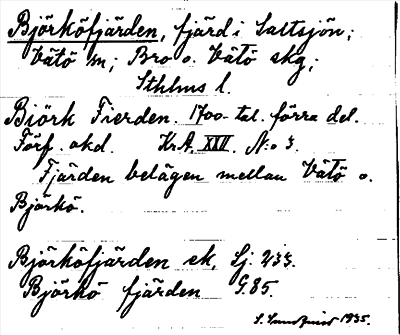 Björköfjärden, fjärd i Saltsjön;
Vätö sn; Bro o. Vätö skg;
Sthlms l.
Björk Fierden. 1700-tal. förra del.
Förf. okd. Kr.A. XXII. N:o 3.
Fjärden belägen mellan Vätö o.
Björkö.
Björköfjärden ek. Lj. 233.
Björkö fjärden G.85.
S. 1935.